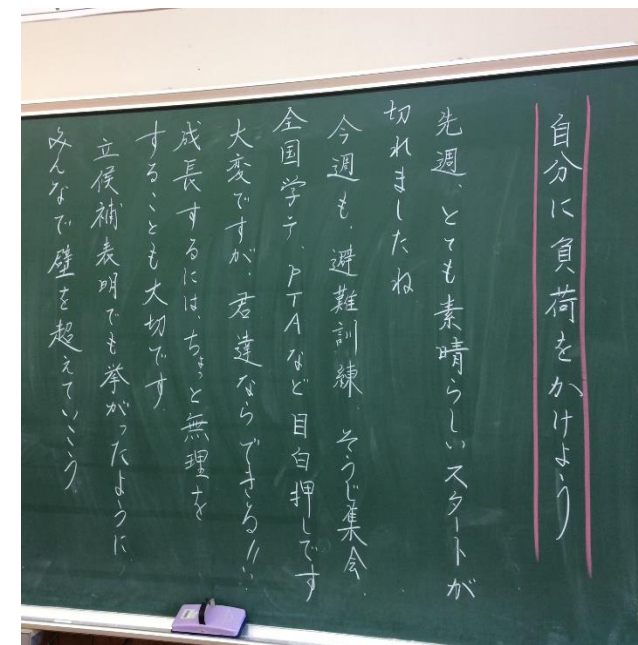 自分に負荷をかけよう
先週、とても素晴らしいスタートが
切れましたね
今週も、避難訓練、そうじ集会、
全国学テ、PTAなど目白押しです
大変ですが、君達ならできる!!
成長するには、ちょっと無理を
することも大切です
立候補表明でも挙がったように、
みんなで壁を超えていこう